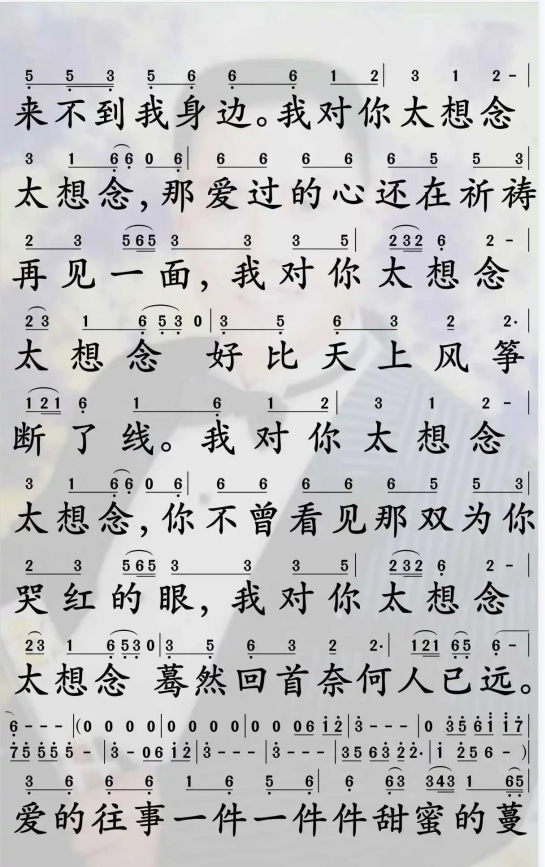 5 5 3 5 6 6 6 1 2| 3 1 2 - |
来不到我身边。我对你太想念
3 1 6 6 0 6| 6 6 6 6 6 5 5 3|
太想念，那爱过的心还在祈祷
2 3 565 3 3 3 5| 232 6 2 - |
再见一面，我对你太想念
2 3 1 6 5 3 0|3 5 6 3 2 2·|
太想念 好比天上风筝
121 6 1 6 1 2| 3 1 2 - |
断了线。我对你太想念
3 1 6 6 0 6| 6 6 6 6 6 5 5 3|
太想念，你不曾看见那双为你
2 3 565 3 3 3 5| 232 6 2 - |
哭红的眼，我对你太想念
23 1 6530|3 5 6 3 2 2·| 121 65 6 -
太想念 蓦然回首奈何人已远。
6 - - - |(0 0 0 0|0 0 0 0|0 0 06 12|3 - - - |0 35 61 17|
75 55 5 - |3 - 06 12|3 - - - |3 - - - |35 63 22·|1 25 6 - )|
3 6 6 6 1 6 5 6| 6 63 343 1 65|
爱的往事一件一件件甜蜜的蔓